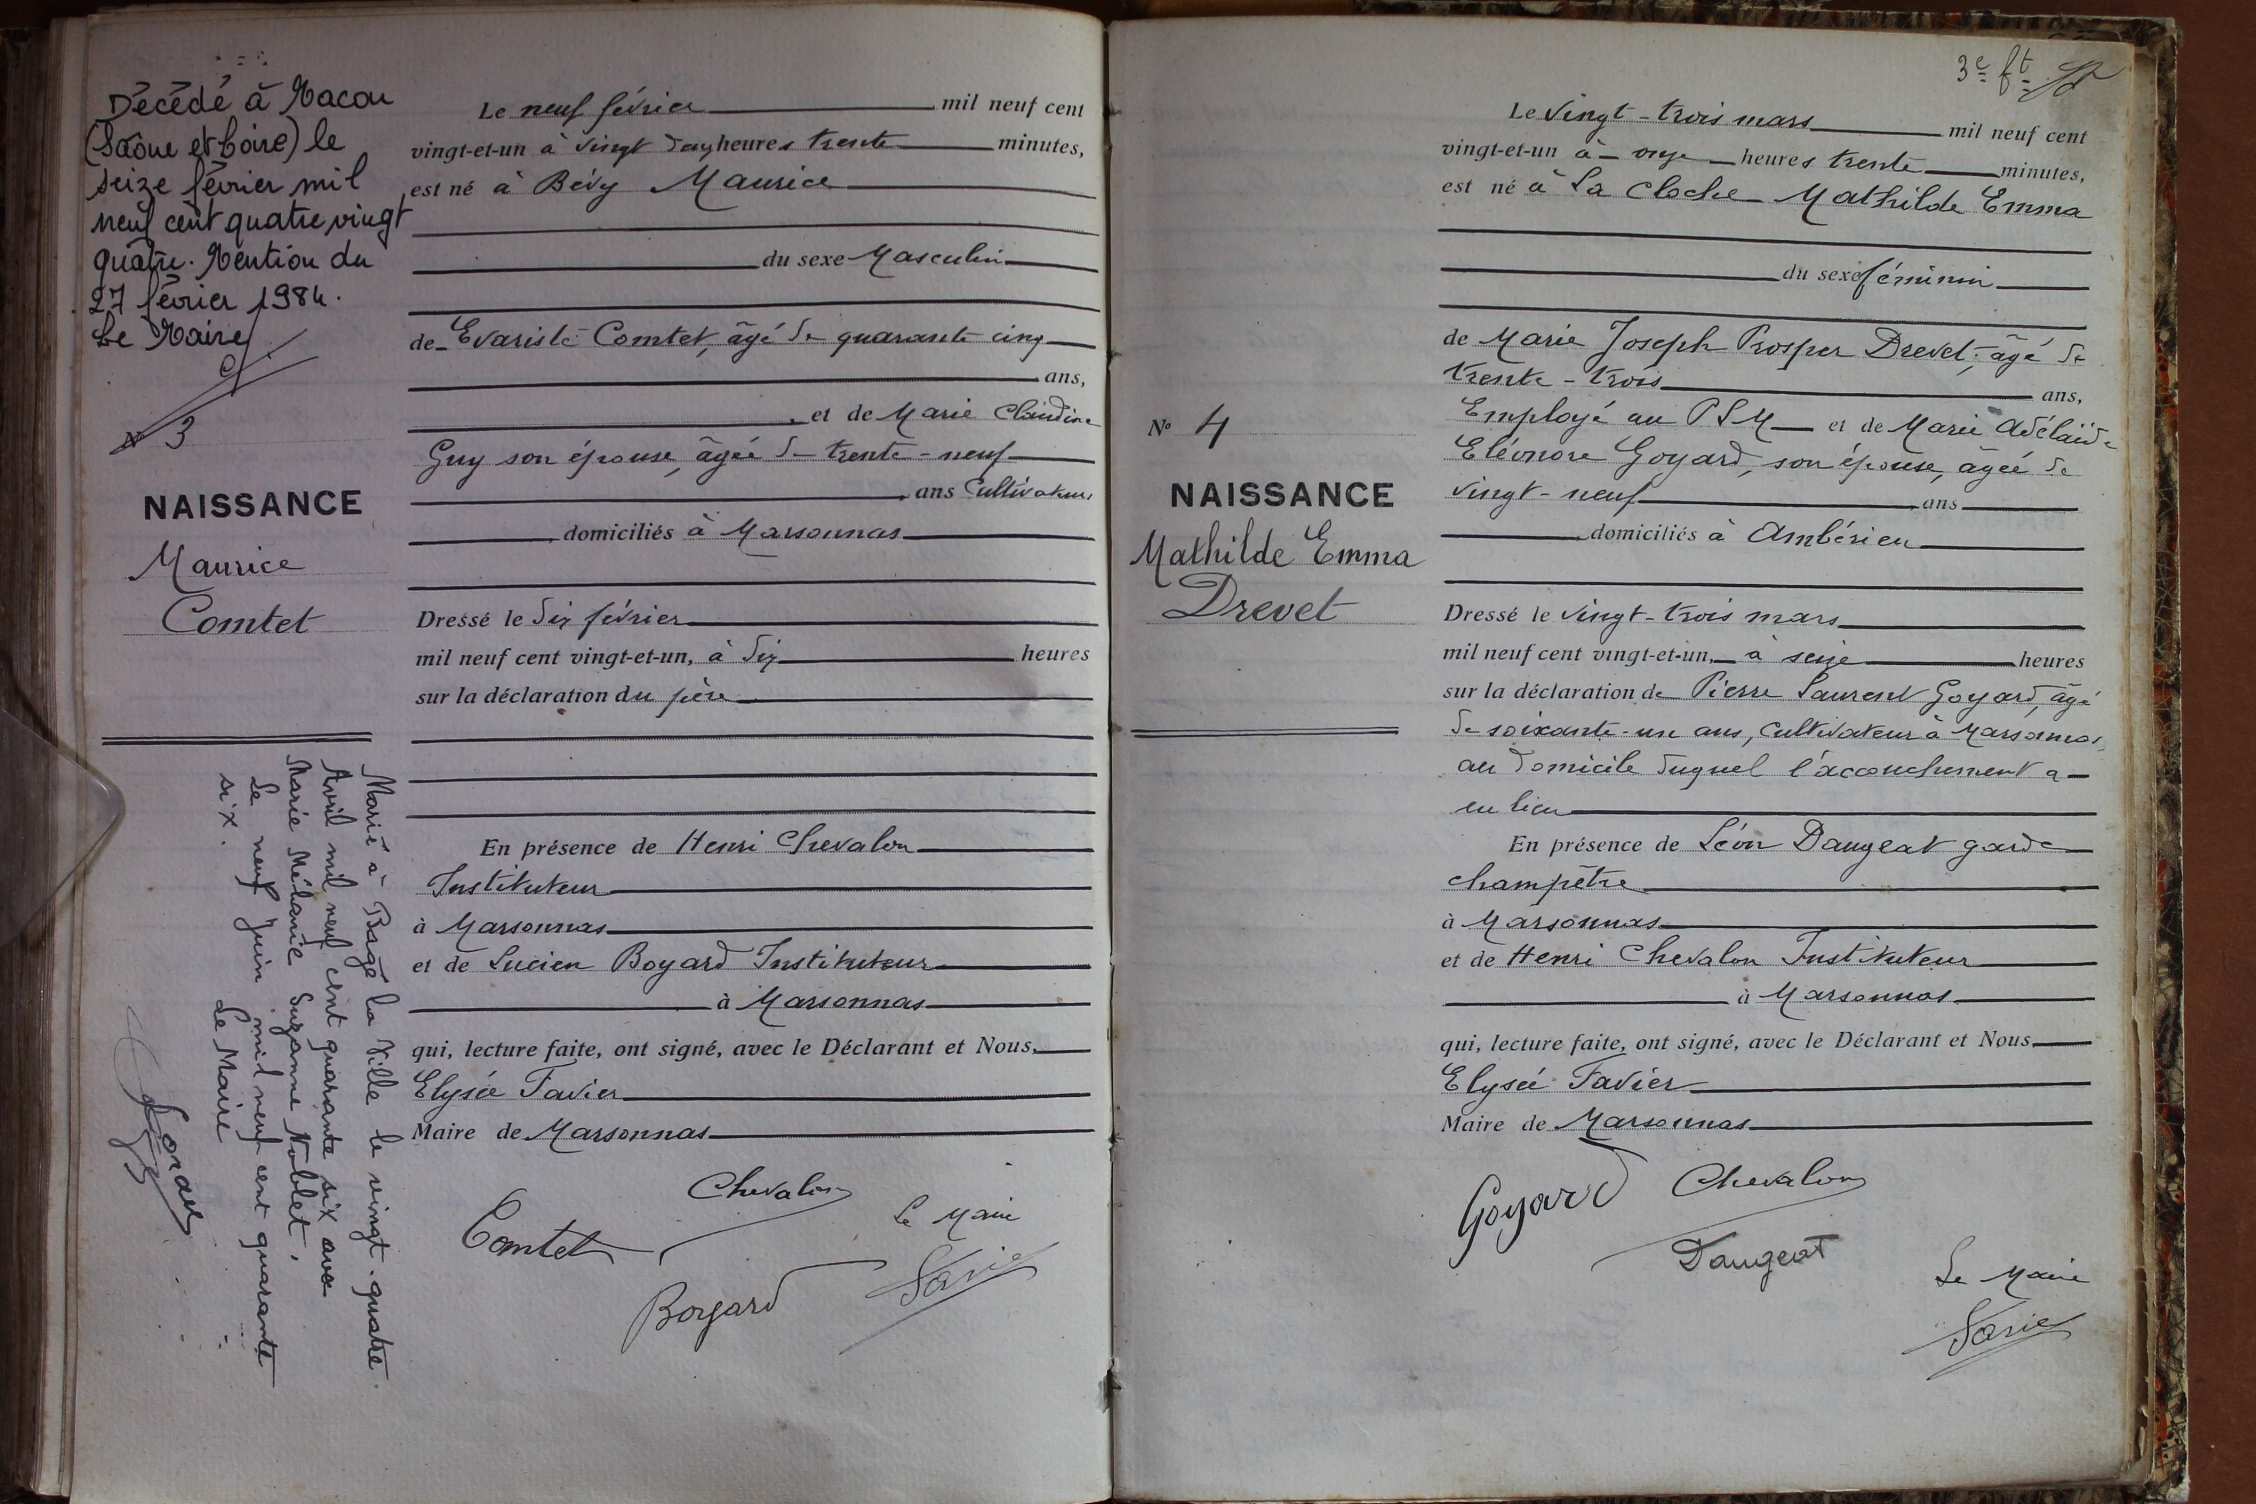 Décédé à Macon
(Saône et Loire) le
seize février mil
neuf cent quatre vingt
quatre. Mention du
27 février 1984.
Le Maire
N° 3
NAISSANCE
Maurice
Comtet
Marié à Bagé la Ville le vingt-quatre
Avril mil neuf cent quarante six avec
Marie Mélanie Suzanne Noblet,
Le neuf Juin mil neuf cent quarante
six. Le Maire
Le neuf février mil neuf cent
vingt-et-un à vingt deux heures trente minutes,
est né à Bévy Maurice
du sexe Masculin
de Evariste Comtet, âgé de quarante cinq
ans,
et de Marie Claudine
Guy son épouse, âgée de trente-neuf
ans Cultivateurs
domiciliés à Marsonnas
Dressé le dix février
mil neuf cent vingt-et-un, à dix heures
sur la déclaration du père
En présence de Henri Chevalon
Instituteur
à Marsonnas
et de Lucien Boyard Instituteur
à Marsonnas
qui, lecture faite, ont signé, avec le Déclarant et Nous,
Elysée Favier
Maire de Marsonnas
Chevalon
Comtet
Le Maire
Boyard
Favier
3e ft
N° 4
NAISSANCE
Mathilde Emma
Drevet
Le vingt-trois mars mil neuf cent
vingt-et-un à onze heures trente minutes,
est né à La Cloche Mathilde Emma
du sexe féminin
de Marie Joseph Prosper Drevet, âgé de
trente-trois ans,
Employé au PLM et de Marie Adélaïde
Eléonore Goyard, son épouse, âgée de
vingt-neuf ans
domiciliés à Ambérieu
Dressé le vingt-trois mars
mil neuf cent vingt-et-un, à seize heures
sur la déclaration de Pierre Laurent Goyard, âgé
de soixante-un ans, cultivateur à Marsonnas,
au domicile duquel l'accouchement a
eu lieu
En présence de Léon Daugeat garde
champêtre
à Marsonnas
et de Henri Chevalon Instituteur
à Marsonnas
qui, lecture faite, ont signé, avec le Déclarant et Nous
Elysée Favier
Maire de Marsonnas
Goyard
Chevalon
Daugeat
Le Maire
Favier